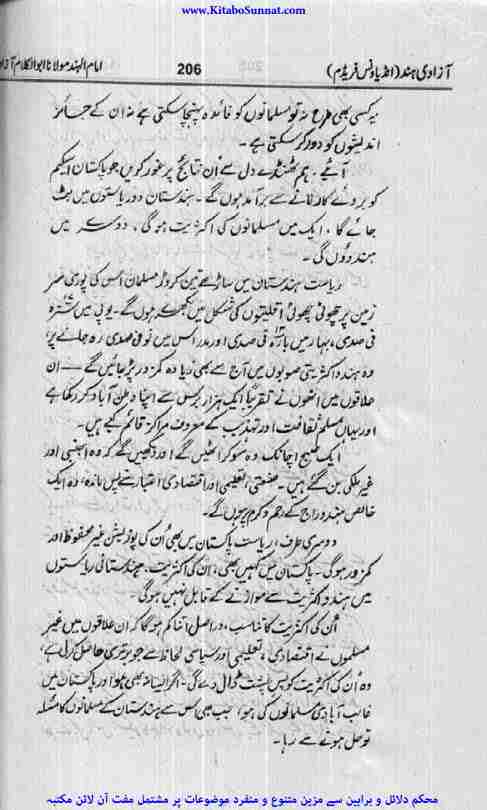 www.KitaboSunnat.com
آزادی ہند (انڈیا ونس فریڈم) 206 امام الہند مولانا ابوالکلام آزاد
یہ کسی بھی طرح نہ تو مسلمانوں کو فائدہ پہنچا سکتی ہے نہ ان کے جائز
اندیشوں کو دور کر سکتی ہے۔
آئیے، ہم ٹھنڈے دل سے اُن نتائج پر غور کریں جو پاکستان اسکیم
کو بروئے کار لانے سے برآمد ہوں گے۔ ہندستان دو ریاستوں میں بٹ
جائے گا، ایک میں مسلمانوں کی اکثریت ہوگی، دوسرے میں
ہندوؤں کی۔
ریاست ہندستان میں ساڑھے تین کروڑ مسلمان اُس کی پوری سر
زمین پر چھوٹی چھوٹی اقلیتوں کی شکل میں بکھرے ہوں گے۔ یو پی میں سترہ
فی صدی، بہار میں بارہ فی صدی اور مدراس میں نو فی صدی رہ جانے پر،
وہ ہندو اکثریتی صوبوں میں آج سے بھی زیادہ کمزور پڑ جائیں گے — ان
علاقوں میں انھوں نے تقریباً ایک ہزار برس سے اپنا وطن آباد کر رکھا ہے
اور یہاں مسلم ثقافت اور تہذیب کے معروف مراکز قائم کیے ہیں۔
ایک صبح اچانک وہ سو کر اٹھیں گے اور دیکھیں گے کہ وہ اجنبی اور
غیر ملکی بن گئے ہیں۔ صنعتی، تعلیمی اور اقتصادی اعتبار سے پس ماندہ، وہ ایک
خالص ہندو راج کے رحم و کرم پر ہوں گے۔
دوسری طرف، ریاست پاکستان میں بھی اُن کی پوزیشن غیر محفوظ اور
کمزور ہوگی۔ پاکستان میں کہیں بھی، اُن کی اکثریت، ہندستانی ریاستوں
میں ہندو اکثریت سے موازنے کے قابل نہیں ہوگی۔
اُن کی اکثریت کا تناسب، دراصل اتنا کم ہوگا کہ ان علاقوں میں غیر
مسلموں نے اقتصادی، تعلیمی اور سیاسی لحاظ سے جو برتری حاصل کر لی ہے،
وہ اُن کی اکثریت کو پس پشت ڈال دے گی۔ اگر ایسا نہ بھی ہو اور پاکستان میں
غالب آبادی مسلمانوں کی ہو، جب بھی اس سے ہندستان کے مسلمانوں کا مسئلہ
تو حل ہونے سے رہا۔
محکم دلائل و براہین سے مزین متنوع و منفرد موضوعات پر مشتمل مفت آن لائن مکتبہ